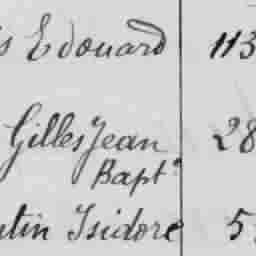 s Edouard 113
Gilles Jean 28
Bapt^e
ntin Isidore 5